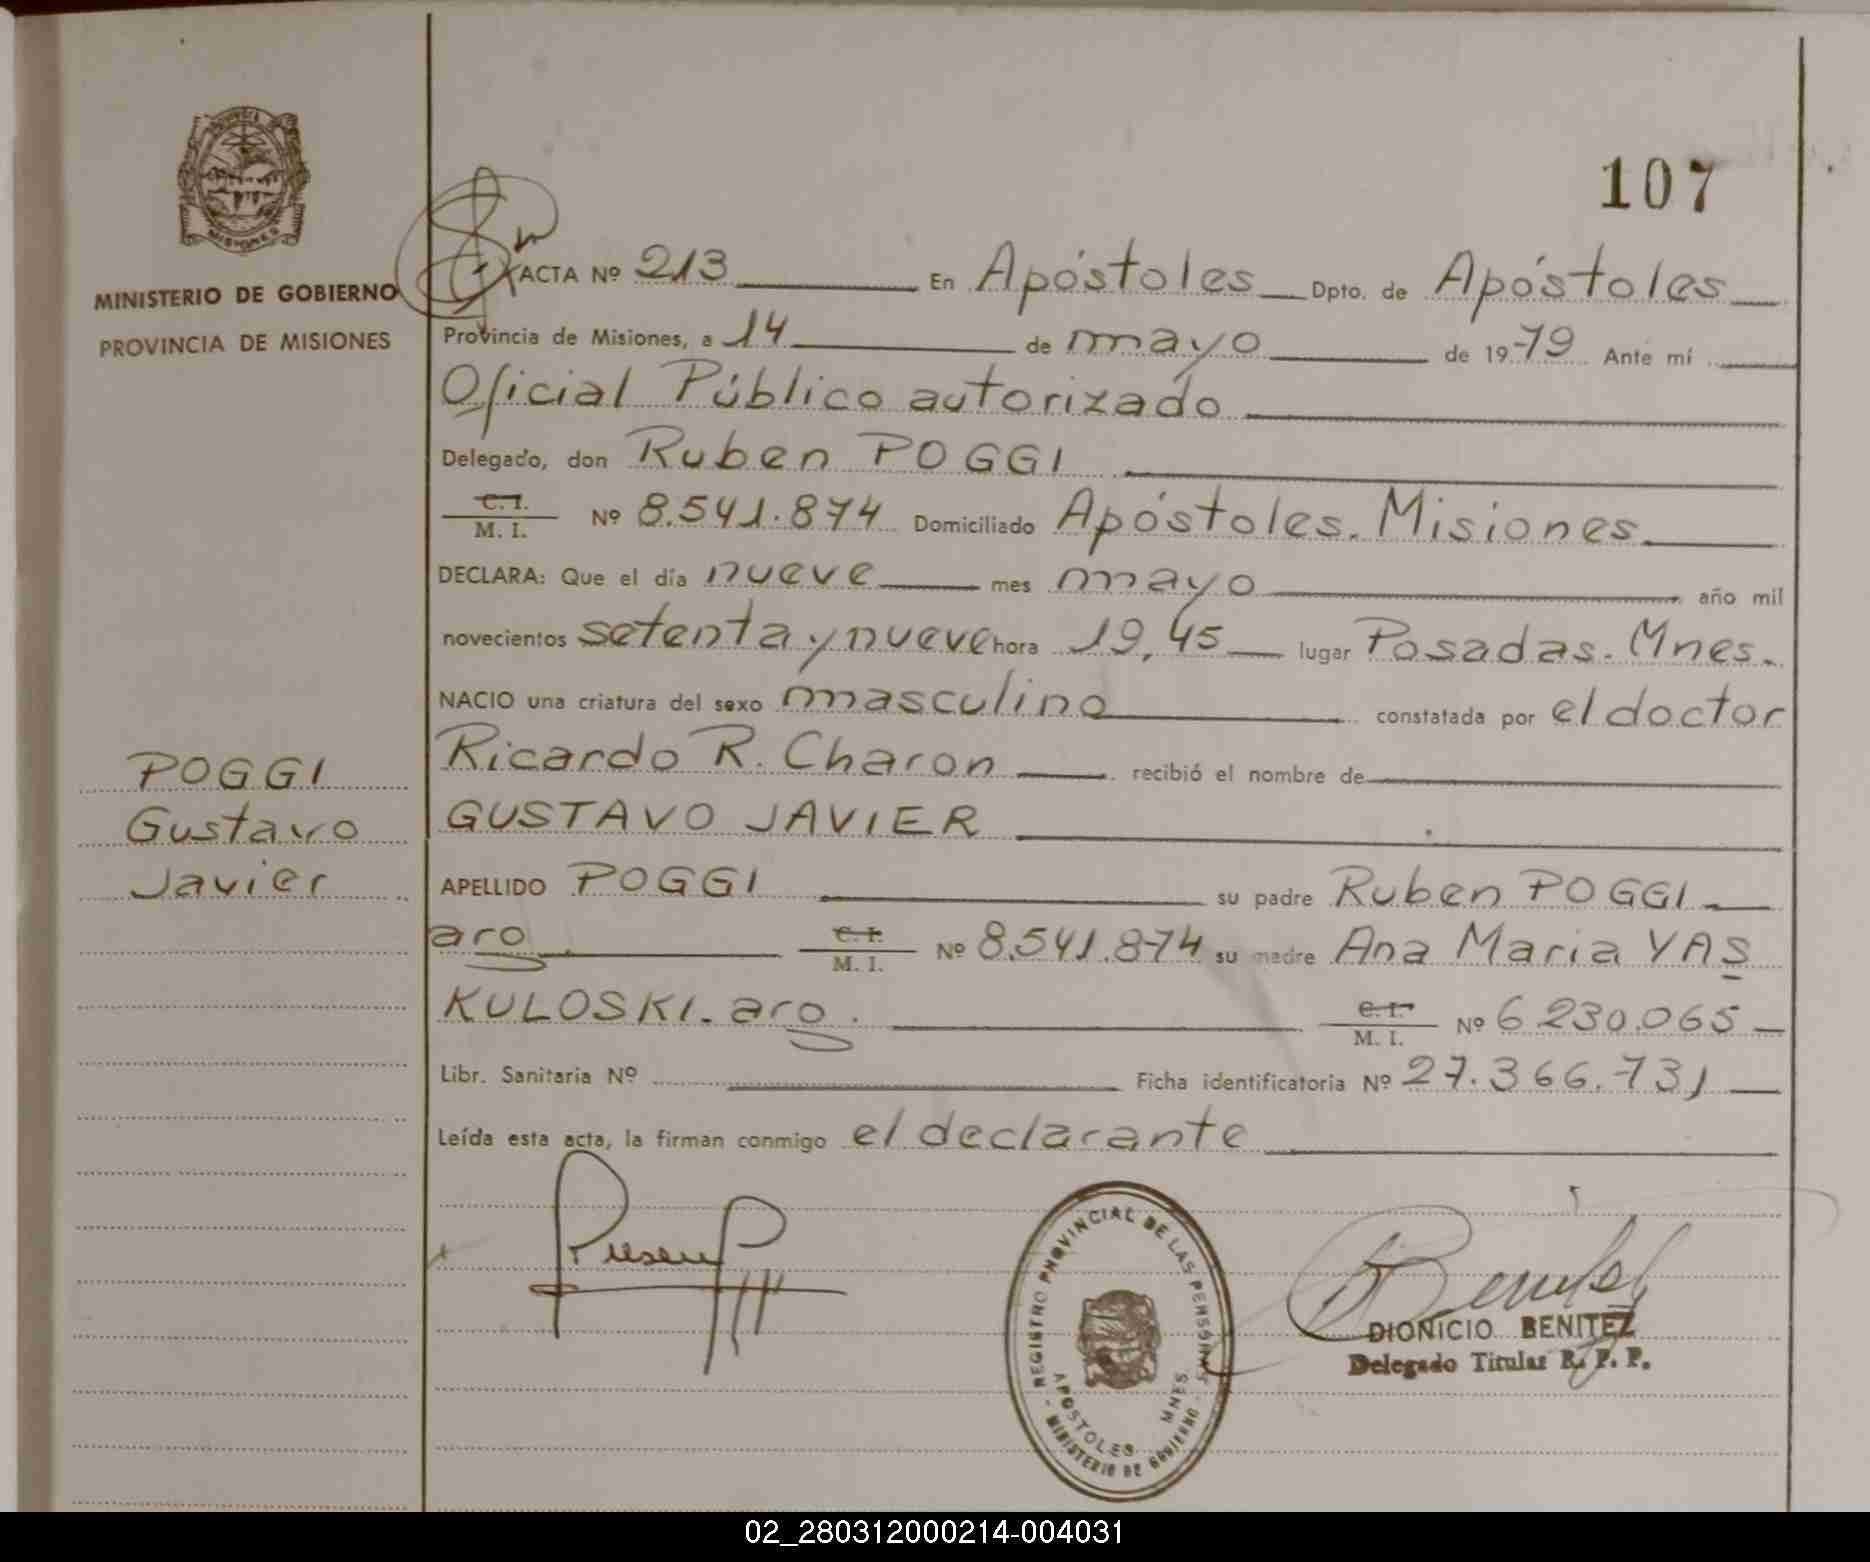 PROVINCIA DE
MISIONES
MINISTERIO DE GOBIERNO
PROVINCIA DE MISIONES
107
ACTA Nº 213 En Apóstoles Dpto. de Apóstoles
Provincia de Misiones, a 14 de mayo de 1979 Ante mí
Oficial Público autorizado
Delegado, don Ruben POGGI
C. I.
M. I. Nº 8.541.874 Domiciliado Apóstoles. Misiones.
DECLARA: Que el día nueve mes mayo año mil
novecientos setenta y nueve hora 19,45 lugar Posadas. Mnes.
NACIO una criatura del sexo masculino constatada por el doctor
Ricardo R. Charon recibió el nombre de
GUSTAVO JAVIER
POGGI
Gustavo
Javier
APELLIDO POGGI su padre Ruben POGGI
arg. C. I.
M. I. Nº 8.541.874 su madre Ana Maria YAS
KULOSKI. arg. C. I.
M. I. Nº 6230.065
Libr. Sanitaria Nº Ficha identificatoria Nº 27.366.731
Leída esta acta, la firman conmigo el declarante
REGISTRO PROVINCIAL DE LAS PERSONAS
APOSTOLES MNES.
- MINISTERIO DE GOBIERNO -
DIONICIO BENITEZ
Delegado Titular R. P. P.
02_280312000214-004031